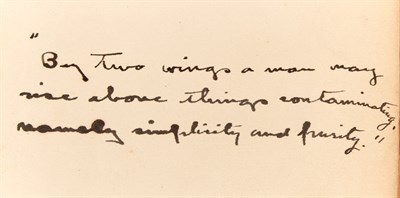 "By Two wings a man may
rise above things contaminating,
namely simplicity and purity."